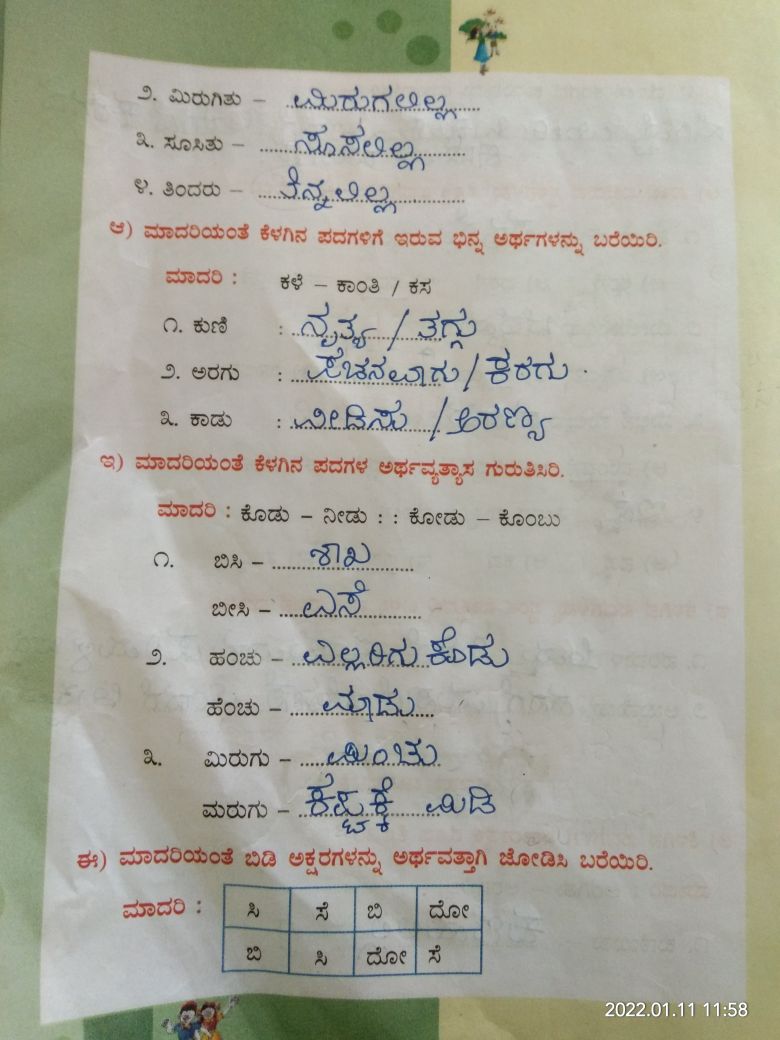 ೨. ಮಿರುಗಿತು – ಮಿರುಗಲಿಲ್ಲ
೩. ಸೂಸಿತು – ಸೂಸಲಿಲ್ಲ
೪. ತಿಂದರು – ತಿನ್ನಲಿಲ್ಲ
ಆ) ಮಾದರಿಯಂತೆ ಕೆಳಗಿನ ಪದಗಳಿಗೆ ಇರುವ ಭಿನ್ನ ಅರ್ಥಗಳನ್ನು ಬರೆಯಿರಿ.
ಮಾದರಿ : ಕಳೆ – ಕಾಂತಿ / ಕಸ
೧. ಕುಣಿ : ನೃತ್ಯ / ತಗ್ಗು
೨. ಅರಗು : ಪಚನವಾಗು / ಕರಗು .
೩. ಕಾಡು : ಪೀಡಿಸು / ಅರಣ್ಯ
ಇ) ಮಾದರಿಯಂತೆ ಕೆಳಗಿನ ಪದಗಳ ಅರ್ಥವ್ಯತ್ಯಾಸ ಗುರುತಿಸಿರಿ.
ಮಾದರಿ : ಕೊಡು – ನೀಡು : : ಕೋಡು – ಕೊಂಬು
೧. ಬಿಸಿ – ಶಾಖ
ಬೀಸಿ – ಎಸೆ
೨. ಹಂಚು – ಎಲ್ಲರಿಗು ಕೊಡು
ಹೆಂಚು – ಮಾಡು
೩. ಮಿರುಗು – ಮಿಂಚು
ಮರುಗು – ಕಷ್ಟಕ್ಕೆ ಮಿಡಿ
ಈ) ಮಾದರಿಯಂತೆ ಬಿಡಿ ಅಕ್ಷರಗಳನ್ನು ಅರ್ಥವತ್ತಾಗಿ ಜೋಡಿಸಿ ಬರೆಯಿರಿ.
ಮಾದರಿ : ಸಿ ಸೆ ಬಿ ದೋ
ಬಿ ಸಿ ದೋ ಸೆ
2022.01.11 11:58